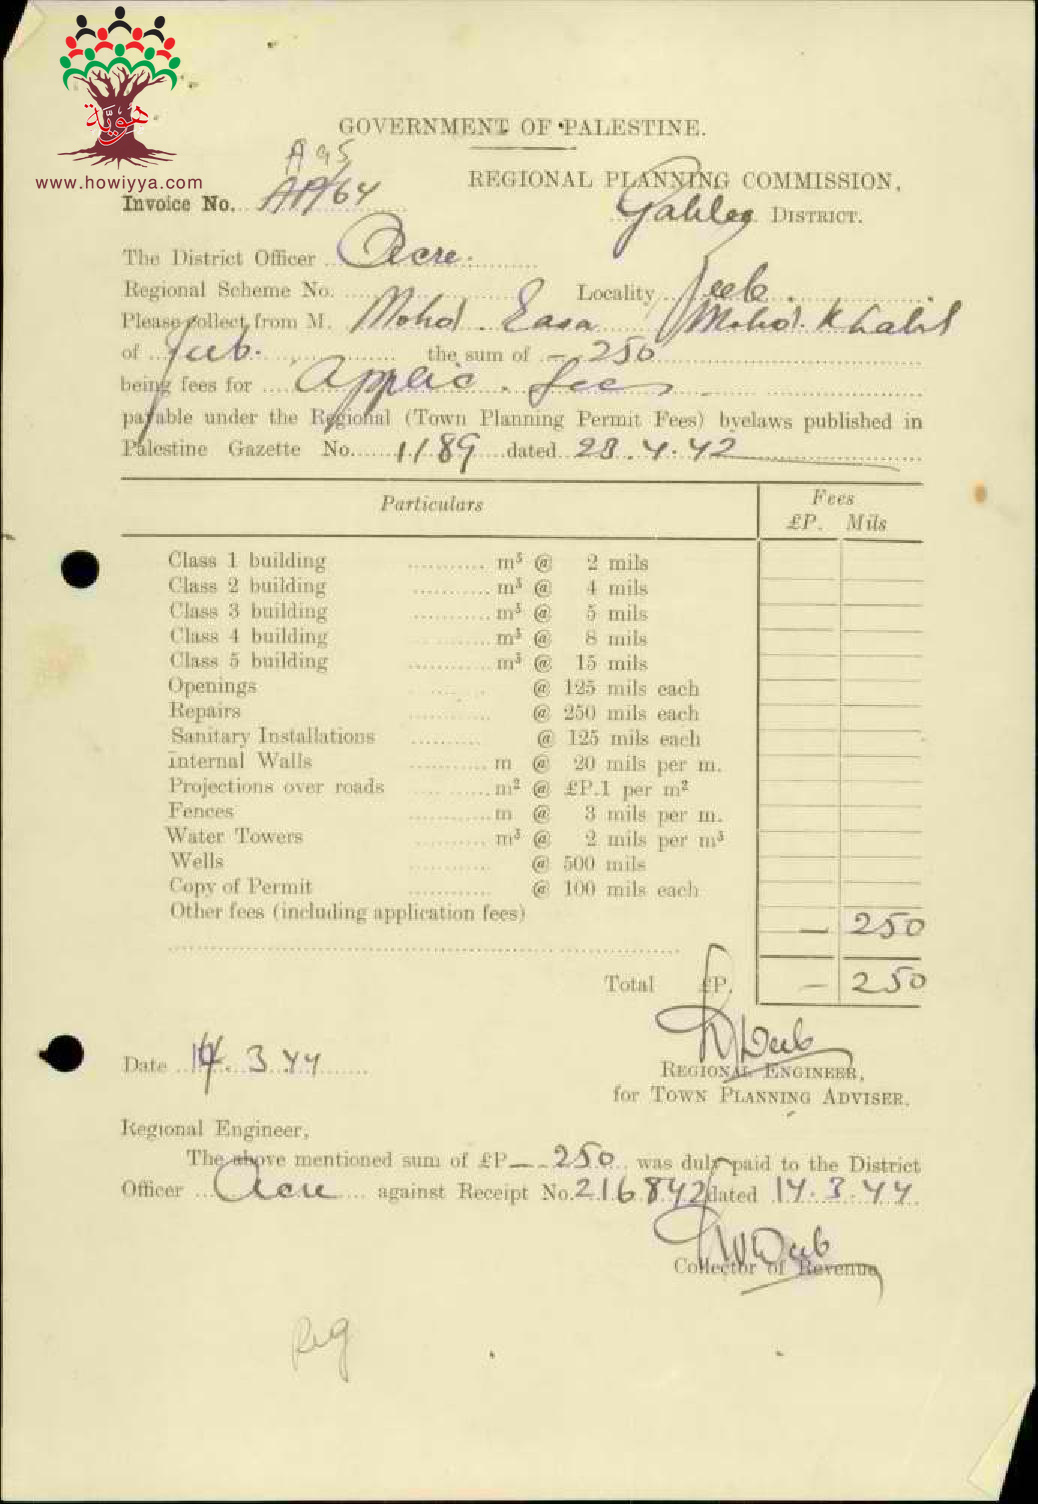 هوية
www.howiyya.com
GOVERNMENT OF PALESTINE.
A 95
REGIONAL PLANNING COMMISSION,
Invoice No. AP/64
Galilee DISTRICT.
The District Officer Acre.
Regional Scheme No. .......... Locality Jeeb.
Please collect from M. Mohd. Easa Mohd. Khalil
of Jeeb. the sum of — 250
being fees for Applic. fees
payable under the Regional (Town Planning Permit Fees) byelaws published in
Palestine Gazette No. 1189 dated 23.4.42
Particulars Fees
£P. Mils
Class 1 building .......... m³ @ 2 mils
Class 2 building .......... m³ @ 4 mils
Class 3 building .......... m³ @ 5 mils
Class 4 building .......... m³ @ 8 mils
Class 5 building .......... m³ @ 15 mils
Openings .......... @ 125 mils each
Repairs .......... @ 250 mils each
Sanitary Installations .......... @ 125 mils each
Internal Walls .......... m @ 20 mils per m.
Projections over roads .......... m² @ £P.1 per m²
Fences .......... m @ 3 mils per m.
Water Towers .......... m³ @ 2 mils per m³
Wells .......... @ 500 mils
Copy of Permit .......... @ 100 mils each
Other fees (including application fees) — 250
Total £P. — 250
Date 14.3.44
REGIONAL ENGINEER,
for TOWN PLANNING ADVISER.
Regional Engineer,
The above mentioned sum of £P — 250 was duly paid to the District
Officer Acre against Receipt No. 216842 dated 14.3.44
Collector of Revenue